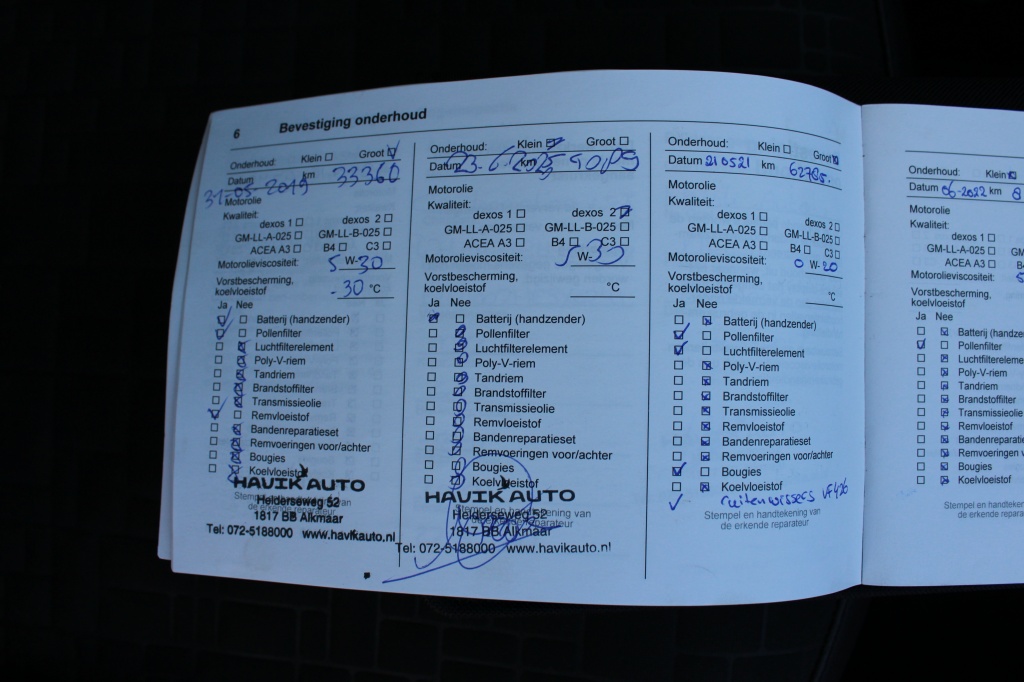 6 Bevestiging onderhoud
Onderhoud: Klein ☐ Groot ☑
Datum km
31-05-2019 33360
Motorolie
Kwaliteit:
dexos 1 ☐ dexos 2 ☐
GM-LL-A-025 ☐ GM-LL-B-025 ☐
ACEA A3 ☐ B4 ☐ C3 ☐
Motorolieviscositeit: 5 W-30
Vorstbescherming,
koelvloeistof -30 °C
Ja Nee
Batterij (handzender)
Pollenfilter
Luchtfilterelement
Poly-V-riem
Tandriem
Brandstoffilter
Transmissieolie
Remvloeistof
Bandenreparatieset
Remvoeringen voor/achter
Bougies
Koelvloeistof
HAVIK AUTO
Stempel en handtekening van
de erkende reparateur
Helderseweg 52
1817 BB Alkmaar
Tel: 072-5188000 www.havikauto.nl
Onderhoud: Klein ☑ Groot ☐
Datum km
Motorolie
Kwaliteit:
dexos 1 ☐ dexos 2 ☑
GM-LL-A-025 ☐ GM-LL-B-025 ☐
ACEA A3 ☐ B4 ☐ C3 ☐
Motorolieviscositeit: 5 W-30
Vorstbescherming,
koelvloeistof °C
Ja Nee
Batterij (handzender)
Pollenfilter
Luchtfilterelement
Poly-V-riem
Tandriem
Brandstoffilter
Transmissieolie
Remvloeistof
Bandenreparatieset
Remvoeringen voor/achter
Bougies
Koelvloeistof
HAVIK AUTO
Stempel en handtekening van
de erkende reparateur
Helderseweg 52
1817 BB Alkmaar
Tel: 072-5188000 www.havikauto.nl
Onderhoud: Klein ☐ Groot ☒
Datum 210521 km 62785.
Motorolie
Kwaliteit:
dexos 1 ☐ dexos 2 ☐
GM-LL-A-025 ☐ GM-LL-B-025 ☐
ACEA A3 ☐ B4 ☐ C3 ☐
Motorolieviscositeit: 0 W-20
Vorstbescherming,
koelvloeistof °C
Ja Nee
Batterij (handzender)
Pollenfilter
Luchtfilterelement
Poly-V-riem
Tandriem
Brandstoffilter
Transmissieolie
Remvloeistof
Bandenreparatieset
Remvoeringen voor/achter
Bougies
Koelvloeistof
ruitenwissers
Stempel en handtekening van
de erkende reparateur
Onderhoud: Klein ☒
Datum 06-2022 km 8
Motorolie
Kwaliteit:
dexos 1 ☐
GM-LL-A-025 ☐
ACEA A3 ☐
Motorolieviscositeit: 5
Vorstbescherming,
koelvloeistof
Ja Nee
Batterij (handze
Pollenfilter
Luchtfilterelemen
Poly-V-riem
Tandriem
Brandstoffilter
Transmissieolie
Remvloeistof
Bandenreparatie
Remvoeringen v
Bougies
Koelvloeistof
Stempel en handteke
de erkende repara